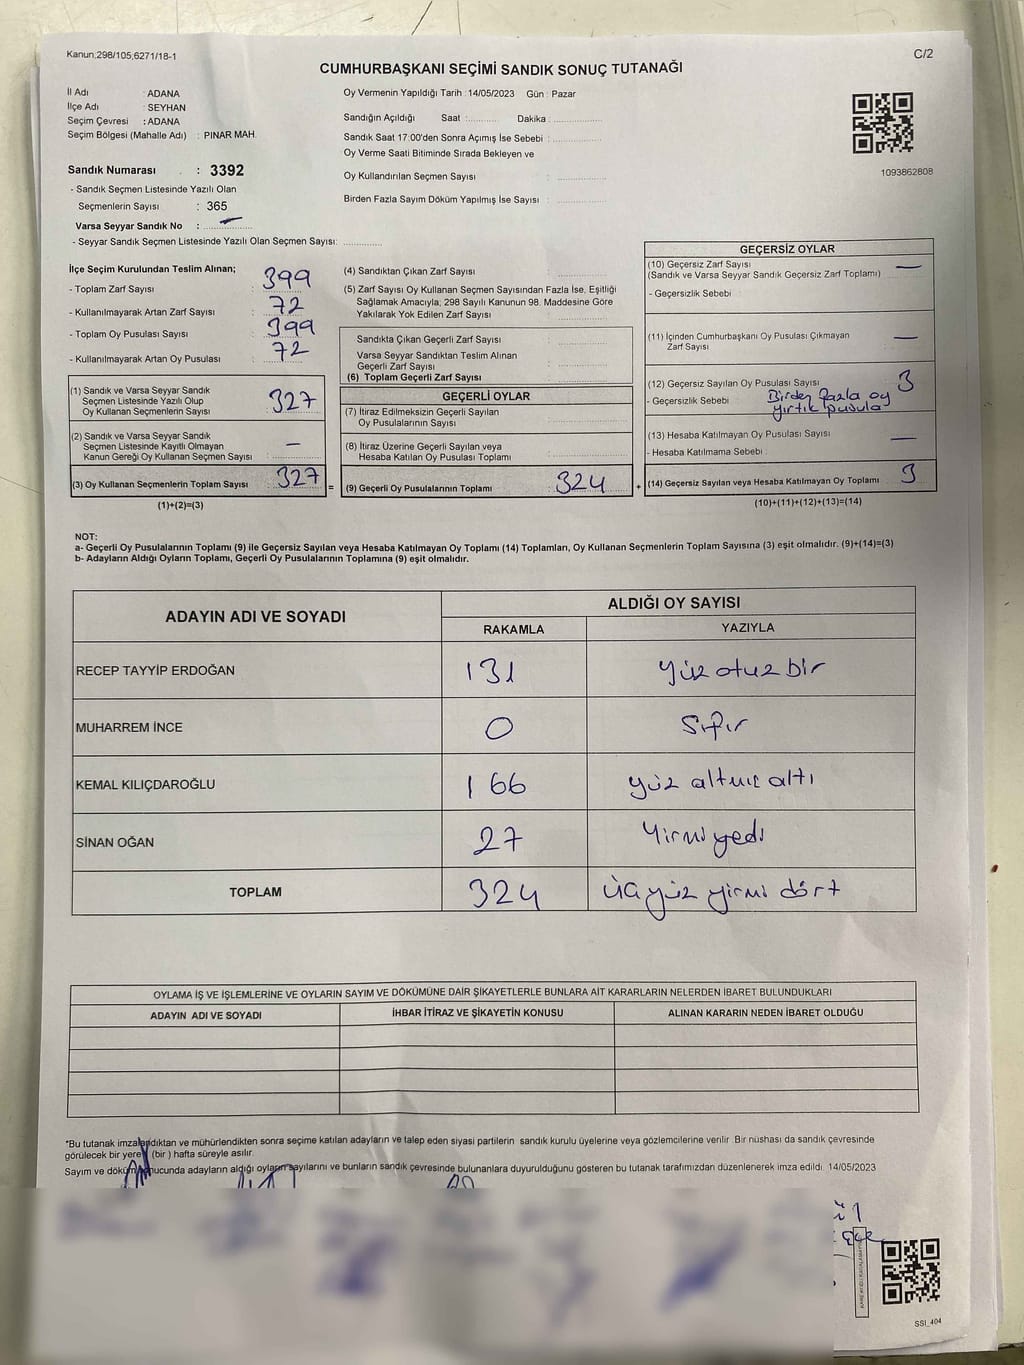 Kanun;298/105;6271/18-1
C/2
CUMHURBAŞKANI SEÇİMİ SANDIK SONUÇ TUTANAĞI
İl Adı : ADANA
İlçe Adı : SEYHAN
Seçim Çevresi : ADANA
Seçim Bölgesi (Mahalle Adı) : PINAR MAH.
Oy Vermenin Yapıldığı Tarih : 14/05/2023 Gün : Pazar
Sandığın Açıldığı Saat :........... Dakika :...............
Sandık Saat 17:00'den Sonra Açımış İse Sebebi :...............
Oy Verme Saati Bitiminde Sırada Bekleyen ve
Oy Kullandırılan Seçmen Sayısı : ...............
Birden Fazla Sayım Döküm Yapılmış İse Sayısı : ...............
1093862808
Sandık Numarası : 3392
- Sandık Seçmen Listesinde Yazılı Olan
Seçmenlerin Sayısı : 365
Varsa Seyyar Sandık No : —
- Seyyar Sandık Seçmen Listesinde Yazılı Olan Seçmen Sayısı: ............
İlçe Seçim Kurulundan Teslim Alınan;
- Toplam Zarf Sayısı : 399
- Kullanılmayarak Artan Zarf Sayısı : 72
- Toplam Oy Pusulası Sayısı : 399
- Kullanılmayarak Artan Oy Pusulası : 72
(1) Sandık ve Varsa Seyyar Sandık
Seçmen Listesinde Yazılı Olup
Oy Kullanan Seçmenlerin Sayısı : 327
(2) Sandık ve Varsa Seyyar Sandık
Seçmen Listesinde Kayıtlı Olmayan
Kanun Gereği Oy Kullanan Seçmen Sayısı : —
(3) Oy Kullanan Seçmenlerin Toplam Sayısı : 327
(1)+(2)=(3)
(4) Sandıktan Çıkan Zarf Sayısı : ...............
(5) Zarf Sayısı Oy Kullanan Seçmen Sayısından Fazla İse, Eşitliği
Sağlamak Amacıyla; 298 Sayılı Kanunun 98. Maddesine Göre
Yakılarak Yok Edilen Zarf Sayısı : ...............
Sandıkta Çıkan Geçerli Zarf Sayısı : ...............
Varsa Seyyar Sandıktan Teslim Alınan
Geçerli Zarf Sayısı : ...............
(6) Toplam Geçerli Zarf Sayısı : ...............
GEÇERLİ OYLAR
(7) İtiraz Edilmeksizin Geçerli Sayılan
Oy Pusulalarının Sayısı : ...............
(8) İtiraz Üzerine Geçerli Sayılan veya
Hesaba Katılan Oy Pusulası Toplamı : ...............
= (9) Geçerli Oy Pusulalarının Toplamı : 324 +
GEÇERSİZ OYLAR
(10) Geçersiz Zarf Sayısı —
(Sandık ve Varsa Seyyar Sandık Geçersiz Zarf Toplamı)
- Geçersizlik Sebebi :
(11) İçinden Cumhurbaşkanı Oy Pusulası Çıkmayan
Zarf Sayısı —
(12) Geçersiz Sayılan Oy Pusulası Sayısı 3
- Geçersizlik Sebebi : Birden fazla oy
yırtık pusula
(13) Hesaba Katılmayan Oy Pusulası Sayısı —
- Hesaba Katılmama Sebebi :
(14) Geçersiz Sayılan veya Hesaba Katılmayan Oy Toplamı 3
(10)+(11)+(12)+(13)=(14)
NOT:
a- Geçerli Oy Pusulalarının Toplamı (9) ile Geçersiz Sayılan veya Hesaba Katılmayan Oy Toplamı (14) Toplamları, Oy Kullanan Seçmenlerin Toplam Sayısına (3) eşit olmalıdır. (9)+(14)=(3)
b- Adayların Aldığı Oyların Toplamı, Geçerli Oy Pusulalarının Toplamına (9) eşit olmalıdır.
ADAYIN ADI VE SOYADI ALDIĞI OY SAYISI
RAKAMLA YAZIYLA
RECEP TAYYİP ERDOĞAN 131 yüz otuz bir
MUHARREM İNCE 0 Sıfır
KEMAL KILIÇDAROĞLU 166 yüz altmış altı
SİNAN OĞAN 27 Yirmi yedi
TOPLAM 324 Üç yüz yirmi dört
OYLAMA İŞ VE İŞLEMLERİNE VE OYLARIN SAYIM VE DÖKÜMÜNE DAİR ŞİKAYETLERLE BUNLARA AİT KARARLARIN NELERDEN İBARET BULUNDUKLARI
ADAYIN ADI VE SOYADI İHBAR İTİRAZ VE ŞİKAYETİN KONUSU ALINAN KARARIN NEDEN İBARET OLDUĞU
*Bu tutanak imzalandıktan ve mühürlendikten sonra seçime katılan adayların ve talep eden siyasi partilerin sandık kurulu üyelerine veya gözlemcilerine verilir. Bir nüshası da sandık çevresinde
görülecek bir yere (bir ) hafta süreyle asılır.
Sayım ve döküm sonucunda adayların aldığı oyların sayılarını ve bunların sandık çevresinde bulunanlara duyurulduğunu gösteren bu tutanak tarafımızdan düzenlenerek imza edildi. 14/05/2023
SSI_404